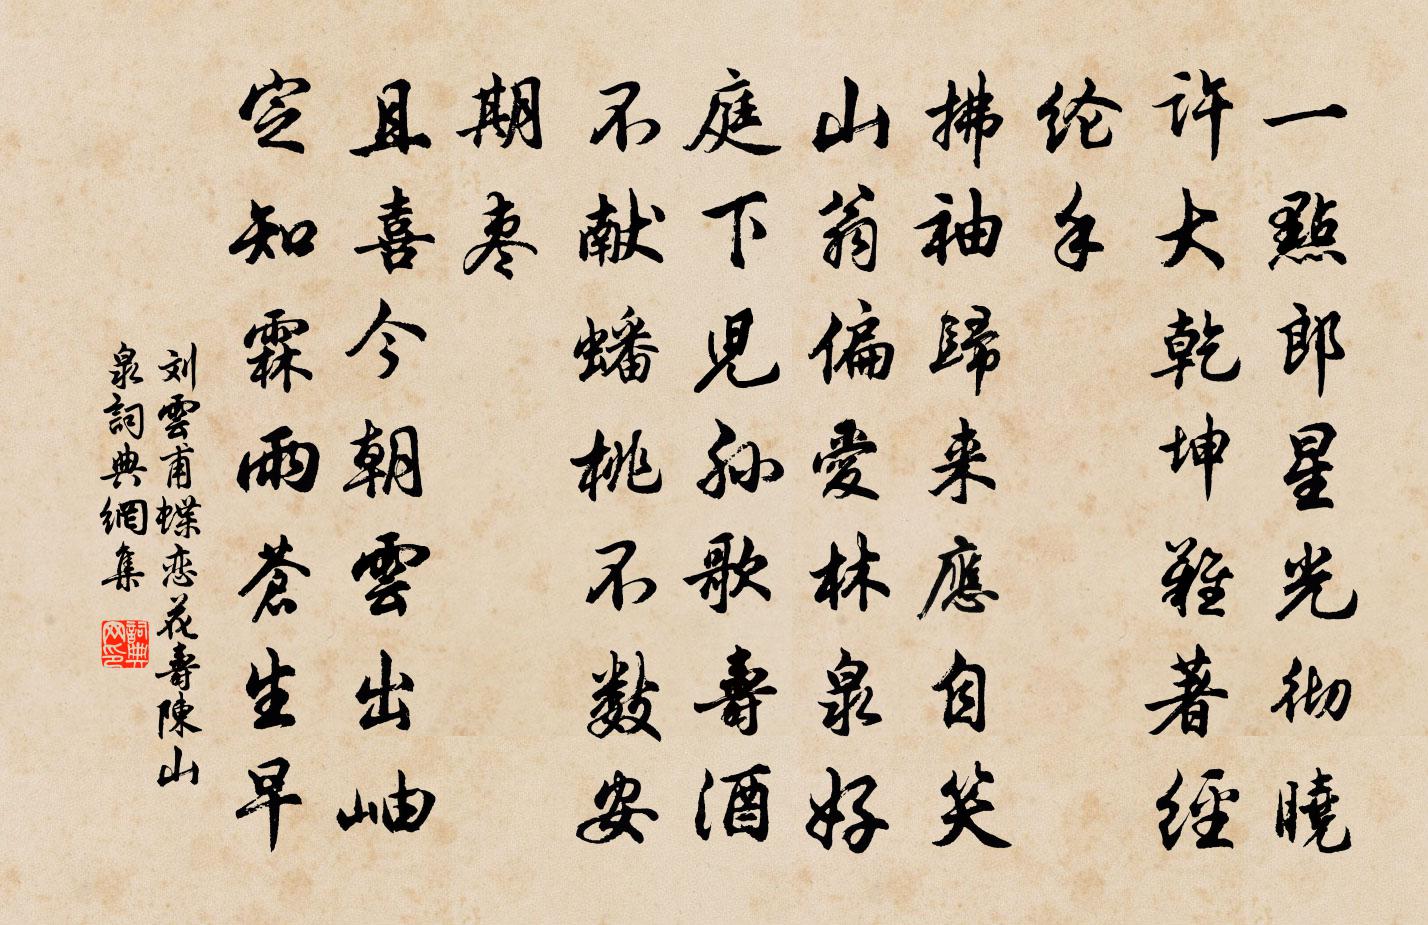 一點郎星光彻曉
许大乾坤難著經
纶手
拂袖歸来應自笑
山翁偏愛林泉好
庭下児孙歌壽酒
不献蟠桃不数安
期枣
且喜今朝雲出岫
定知霖雨蒼生早
刘雲甫蝶恋花壽陳山
泉詞典網集
詞典
网印